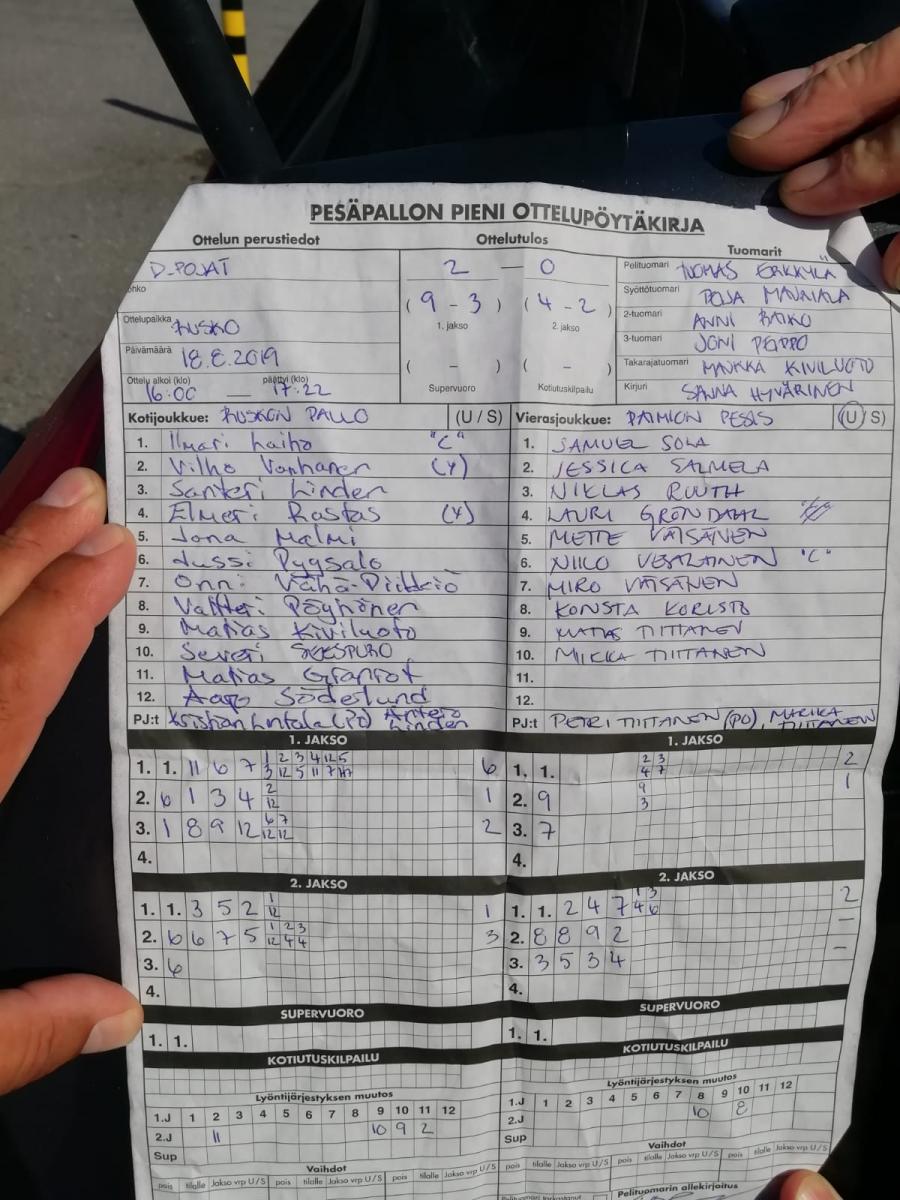 PESÄPALLON PIENI OTTELUPÖYTÄKIRJA
Ottelun perustiedot
D-POJAT
Ottelupaikka RUSKO
Päivämäärä 18.8.2019
Ottelu alkoi (klo) päättyi (klo)
16:00 — 17:22
Ottelutulos
2 — 0
( 9 - 3 ) ( 4 - 2 )
1. jakso 2. jakso
( - ) ( - )
Supervuoro Kotiutuskilpailu
Tuomarit
Pelituomari TUOMAS ERKKYLÄ
Syöttötuomari
2-tuomari ANNI
3-tuomari JONI PEIPPO
Takarajatuomari MARKKA KIVILUOTO
Kirjuri SANNA HYVÄRINEN
Kotijoukkue: RUSKON PALLO (U / S)
1. Ilmari Laiho "C"
2. Vilho Vanhanen (Y)
3. Santeri Linden
4. Elmeri Rastas (Y)
5. Jona Malmi
6. Jussi Pyysalo
7. Onni Vähä-Piikkiö
8. Valtteri Pöyhönen
9. Matias Kiviluoto
10. Severi
11. Matias Granrot
12. Aapo Söderlund
PJ:t Kristian Lintala (PJ) Antero Linden
Vierasjoukkue: PAIMION PESIS (U / S)
1. SAMUEL SOLA
2. JESSICA SALMELA
3. NIKLAS RUUTH
4. LAURI GRÖNDAHL
5. METTE VÄISÄNEN
6. NIILO VESALAINEN "C"
7. MIRO VÄISÄNEN
8. KONSTA KORISTO
9. MATIAS TIITTANEN
10. MIIKKA TIITTANEN
11.
12.
PJ:t PETRI TIITTANEN (PJ), MARIKA TIITTANEN
1. JAKSO
1. 1. 11 6 7 1 2 3 4 12 5 6
3 12 5 11 7
2. 6 1 3 4 2 1
12
3. 1 8 9 12 6 7 2
12 12
4.
1. JAKSO
1. 1. 2 3 2
4 7
2. 9 9 1
3
3. 7
4.
2. JAKSO
1. 1. 3 5 2 1 1
12
2. 6 6 7 5 1 2 3 3
12 4 4
3. 6
4.
2. JAKSO
1. 1. 2 4 7 1 3 2
4 6
2. 8 8 9 2 –
3. 3 5 3 4 –
4.
SUPERVUORO
1. 1.
SUPERVUORO
1. 1.
KOTIUTUSKILPAILU
KOTIUTUSKILPAILU
Lyöntijärjestyksen muutos
1.J 1 2 3 4 5 6 7 8 9 10 11 12
2.J 11 10 9 2
Sup
Lyöntijärjestyksen muutos
1.J 1 2 3 4 5 6 7 8 9 10 11 12
2.J 10 8
Sup
Vaihdot
pois tilalle Jakso vrp U/S pois tilalle Jakso vrp U/S pois tilalle Jakso vrp U/S
Vaihdot
pois tilalle Jakso vrp U/S pois tilalle Jakso vrp U/S pois tilalle Jakso vrp U/S
Pelituomarin allekirjoitus